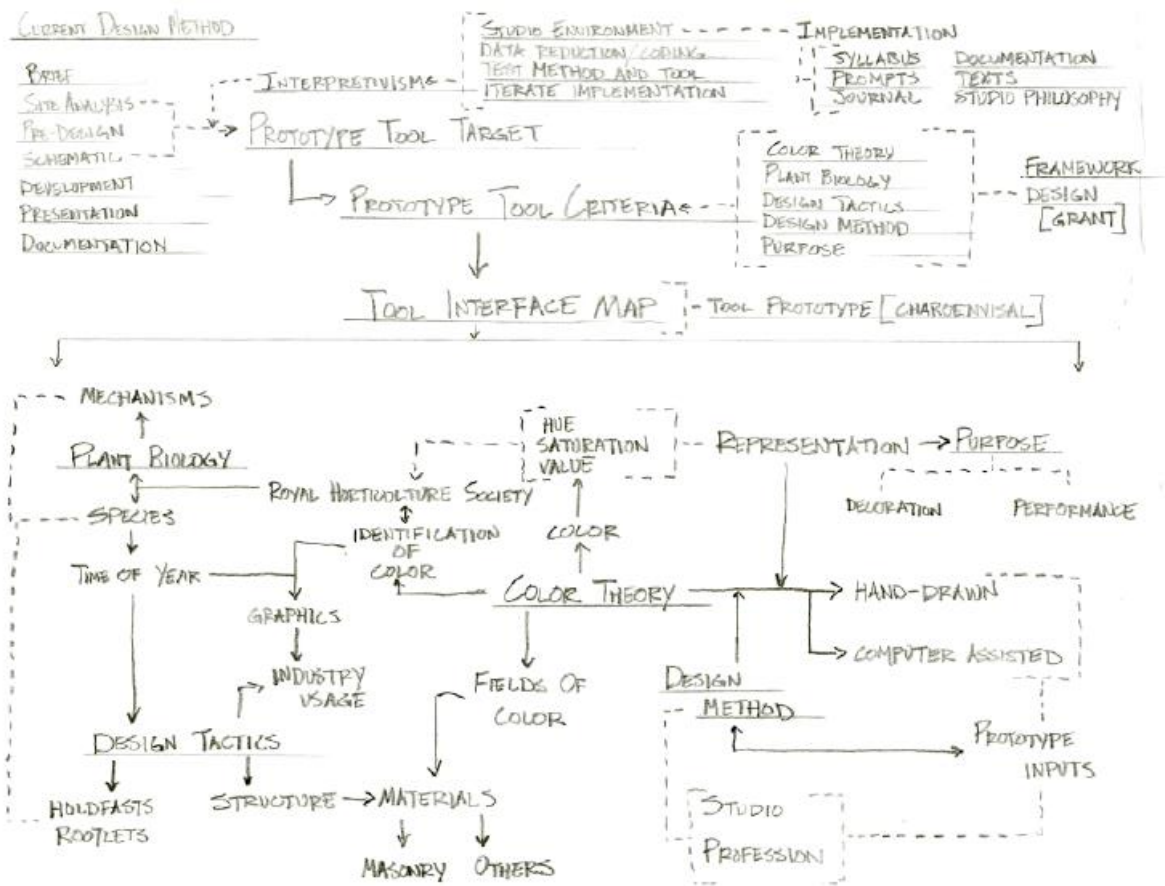 CURRENT DESIGN METHOD
BRIEF
SITE ANALYSIS
PRE-DESIGN
SCHEMATIC
DEVELOPMENT
PRESENTATION
DOCUMENTATION
INTERPRETIVISM
STUDIO ENVIRONMENT
DATA REDUCTION/CODING
TEST METHOD AND TOOL
ITERATE IMPLEMENTATION
IMPLEMENTATION
SYLLABUS
PROMPTS
JOURNAL
DOCUMENTATION
TEXTS
STUDIO PHILOSOPHY
PROTOTYPE TOOL TARGET
PROTOTYPE TOOL CRITERIA
COLOR THEORY
PLANT BIOLOGY
DESIGN TACTICS
DESIGN METHOD
PURPOSE
FRAMEWORK
DESIGN
[GRANT]
TOOL INTERFACE MAP
TOOL PROTOTYPE [CHAROENVISAL]
MECHANISMS
PLANT BIOLOGY
SPECIES
TIME OF YEAR
ROYAL HORTICULTURE SOCIETY
IDENTIFICATION
OF
COLOR
GRAPHICS
INDUSTRY
USAGE
DESIGN TACTICS
HOLDFASTS
ROOTLETS
STRUCTURE
MATERIALS
MASONRY
OTHERS
HUE
SATURATION
VALUE
COLOR
COLOR THEORY
FIELDS OF
COLOR
REPRESENTATION
PURPOSE
DECORATION
PERFORMANCE
HAND-DRAWN
COMPUTER ASSISTED
DESIGN
METHOD
PROTOTYPE
INPUTS
STUDIO
PROFESSION